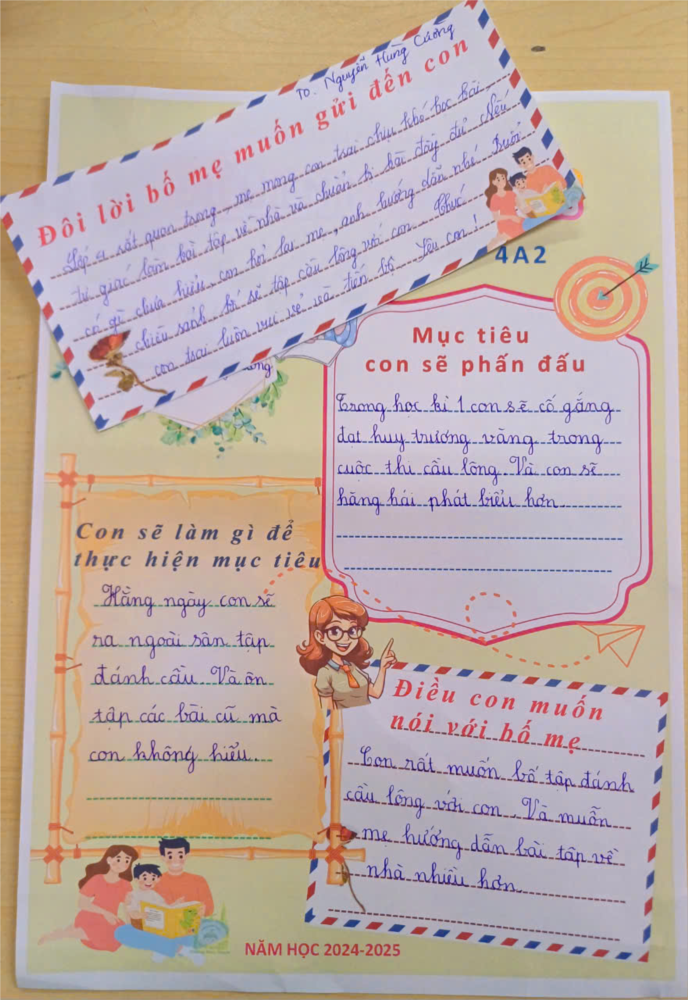 TO. Nguyễn Hùng Cường
Đôi lời bố mẹ muốn gửi đến con
Lớp 4 rất quan trọng, mẹ mong con trai chịu khó học bài,
tự giác làm bài tập về nhà và chuẩn bị bài đầy đủ. Nếu
có gì chưa hiểu, con hỏi lại mẹ, anh hướng dẫn nhé. Buổi
chiều rảnh bố sẽ tập cầu lông với con. Chúc
con trai luôn vui vẻ và tiến bộ. Yêu con!
4A2
Mục tiêu
con sẽ phấn đấu
Trong học kì 1 con sẽ cố gắng
đạt huy trương vàng trong
cuộc thi cầu lông. Và con sẽ
hăng hái phát biểu hơn.
Con sẽ làm gì để
thực hiện mục tiêu
Hằng ngày con sẽ
ra ngoài sân tập
đánh cầu. Và ôn
tập các bài cũ mà
con không hiểu.
Điều con muốn
nói với bố mẹ
Con rất muốn bố tập đánh
cầu lông với con. Và muốn
mẹ hướng dẫn bài tập về
nhà nhiều hơn.
NĂM HỌC 2024-2025